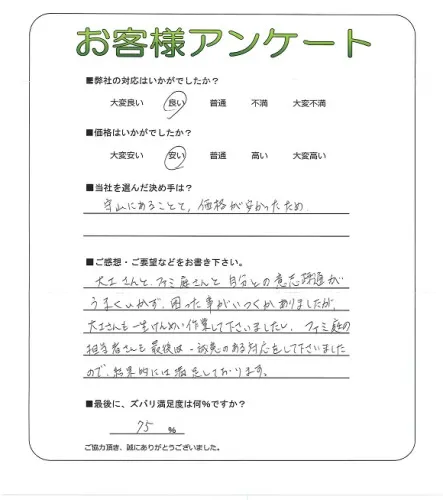 お客様アンケート
■弊社の対応はいかがでしたか？
大変良い 良い 普通 不満 大変不満
■価格はいかがでしたか？
大変安い 安い 普通 高い 大変高い
■当社を選んだ決め手は？
守山にあることと、価格が安かったため
■ご感想・ご要望などをお書き下さい。
大工さんと、ファミ庭さんと自分との意志疎通が
うまくいかず、困った事がいくつかありましたが、
大工さんも一生けんめい作業して下さいましたし、ファミ庭の
担当者さんも最後は、誠意のある対応をして下さいました
ので、結果的には満足しております。
■最後に、ズバリ満足度は何%ですか？
75 %
ご協力頂き、誠にありがとうございました。